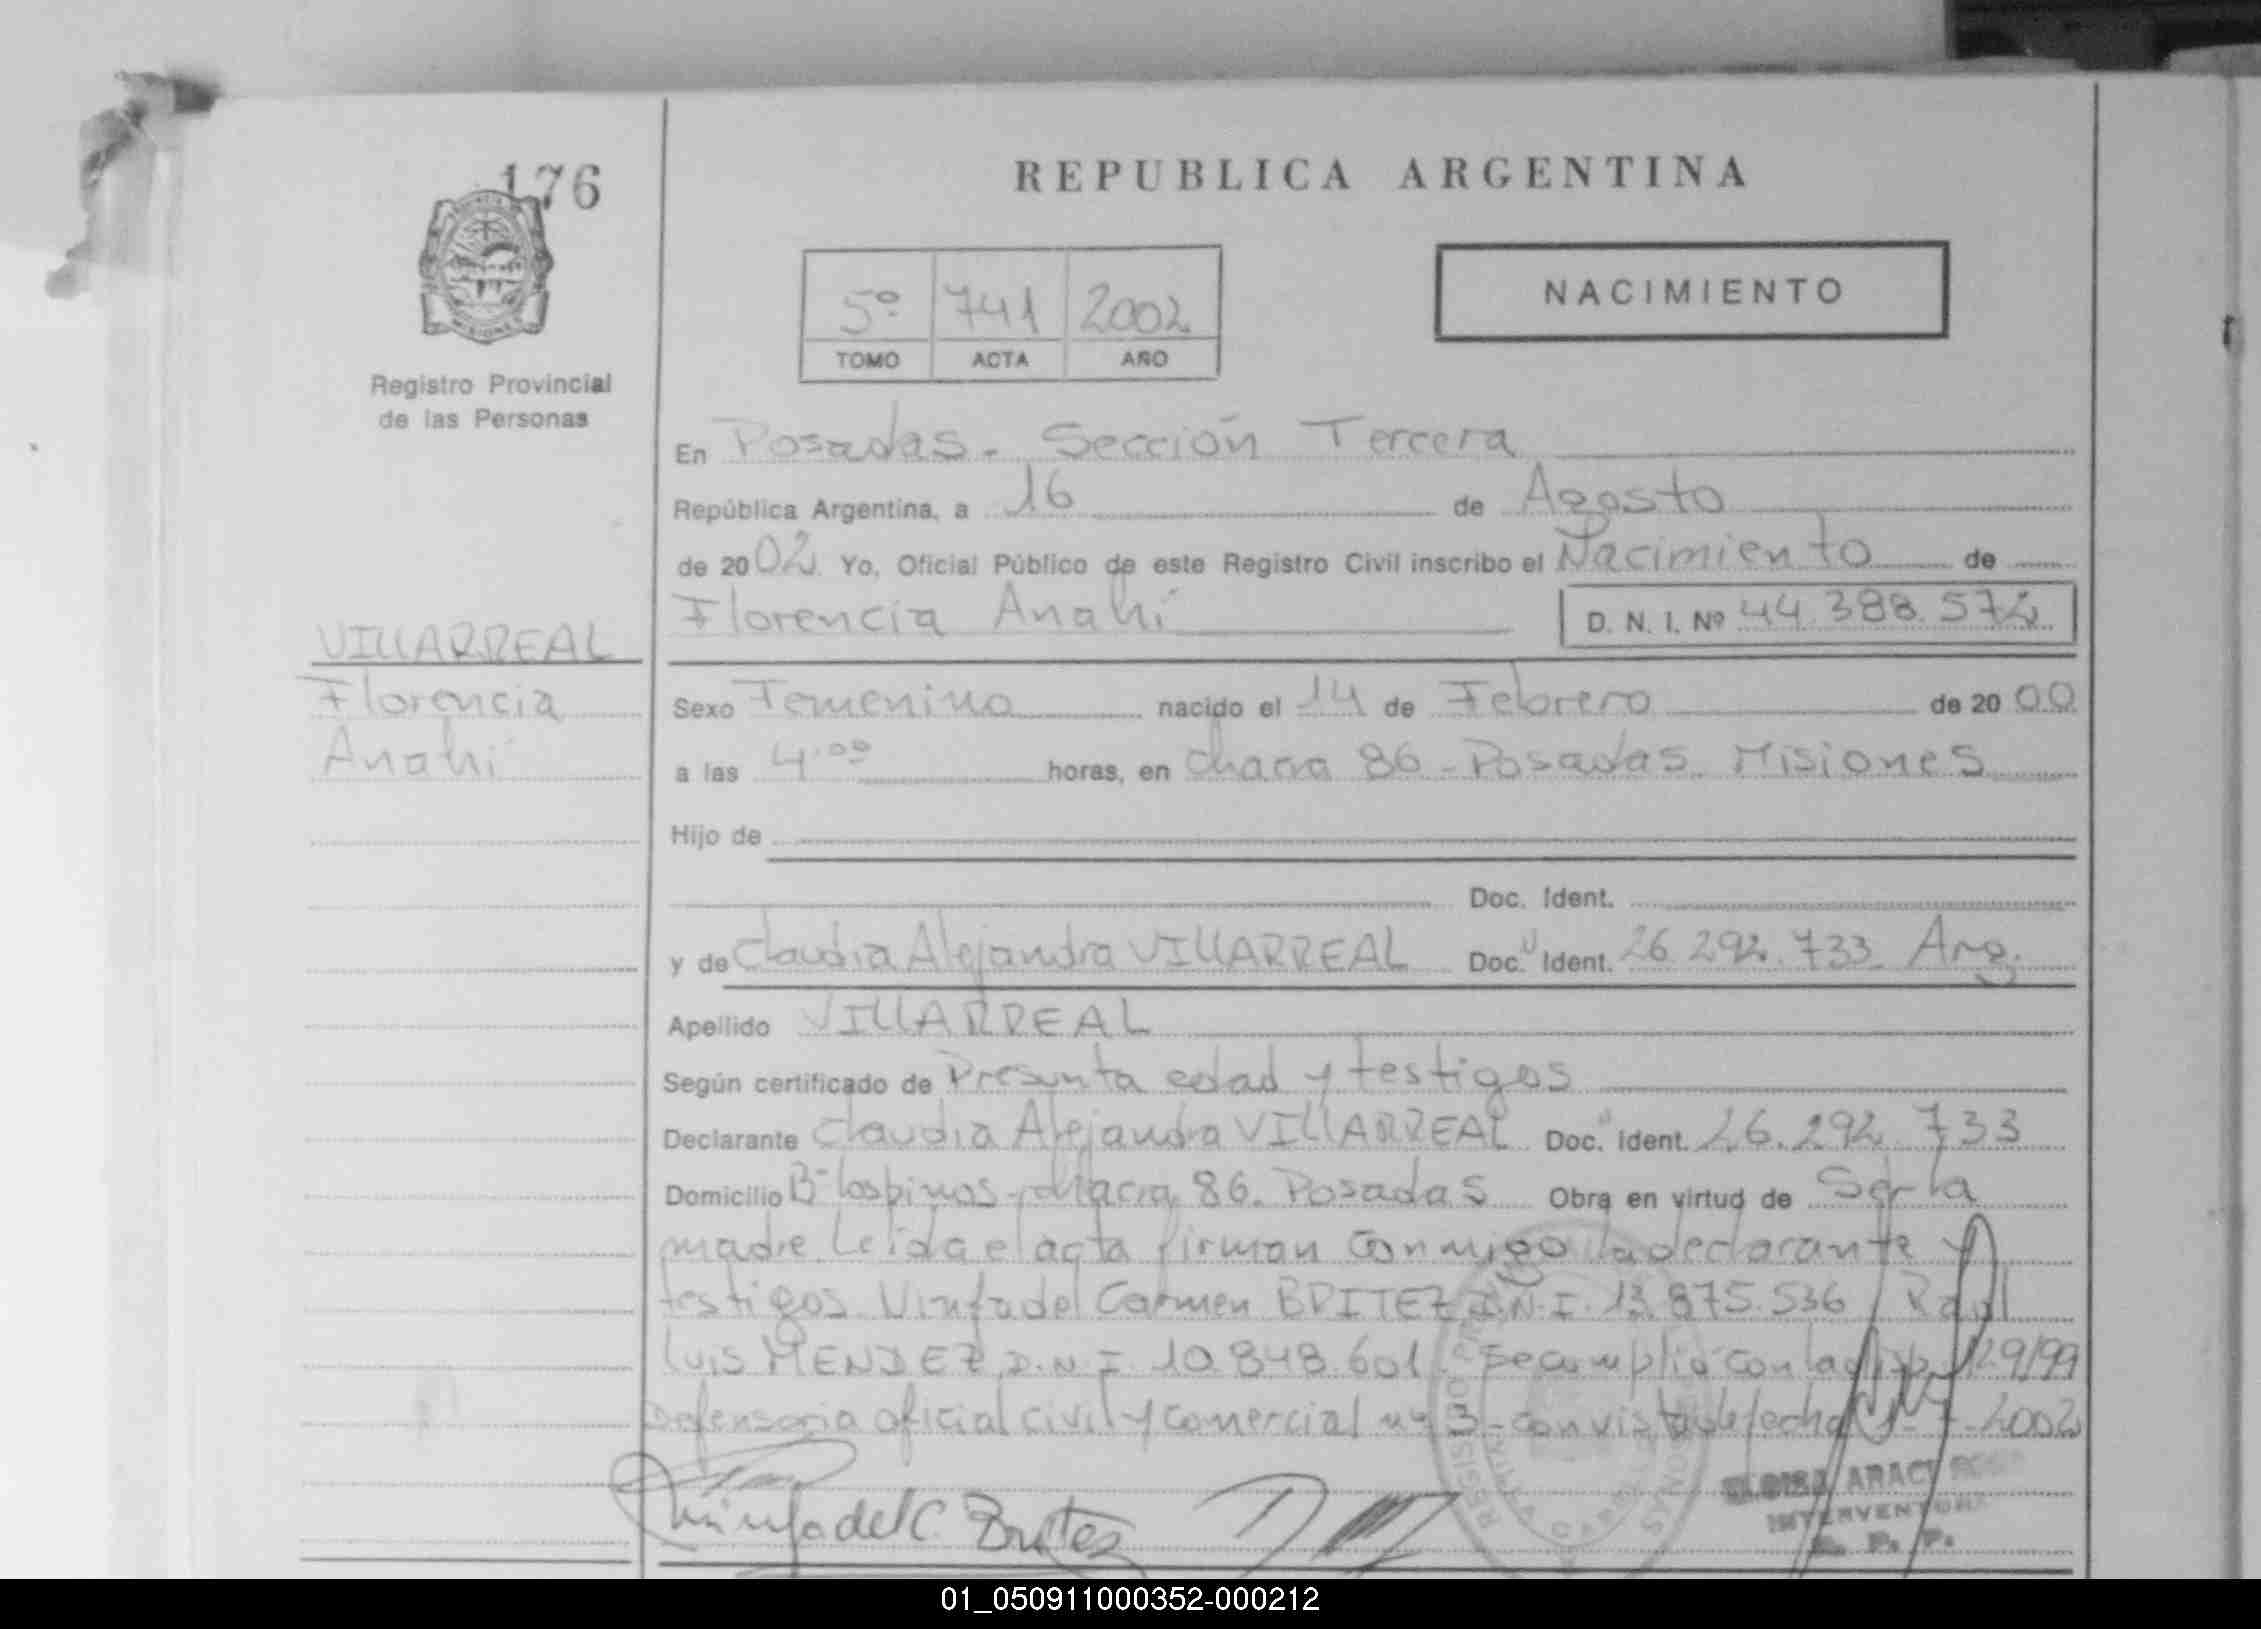 176
REPUBLICA ARGENTINA
NACIMIENTO
5º 741 2002
TOMO ACTA AÑO
Registro Provincial
de las Personas
En Posadas. Sección Tercera
República Argentina, a 16 de Agosto
de 2002. Yo, Oficial Público de este Registro Civil inscribo el Nacimiento de
Florencia Anahí D. N. I. Nº 44.388.572
VILLARREAL
Florencia
Anahí
Sexo Femenino nacido el 14 de Febrero de 2000
a las 4.00 horas, en chacra 86 - Posadas Misiones
Hijo de
Doc. Ident.
y de Claudia Alejandra VILLARREAL Doc. Ident. 26.292.733 Arg.
Apellido VILLARREAL
Según certificado de Presunta edad y testigos
Declarante Claudia Alejandra VILLARREAL Doc. Ident. 26.292.733
Domicilio Bº los pinos - chacra 86. Posadas Obra en virtud de Ser la
madre Leída el acta firman conmigo la declarante y
testigos Ninfa del Carmen BRITEZ D.N.I. 13.875.536 Raul
Luis MENDEZ D.N.I. 10.848.601. Se cumplió con la 129/99
Defensoria oficial civil y comercial nº 3 - con vista de fecha 2002
Ninfa del C. Britez
INTERVENTORA
R. P. P.
01_050911000352-000212